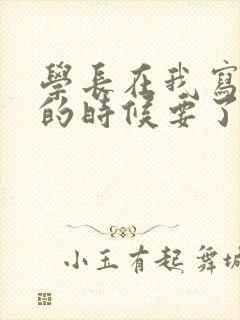 學長在我寫
的時候要了
小玉有起舞